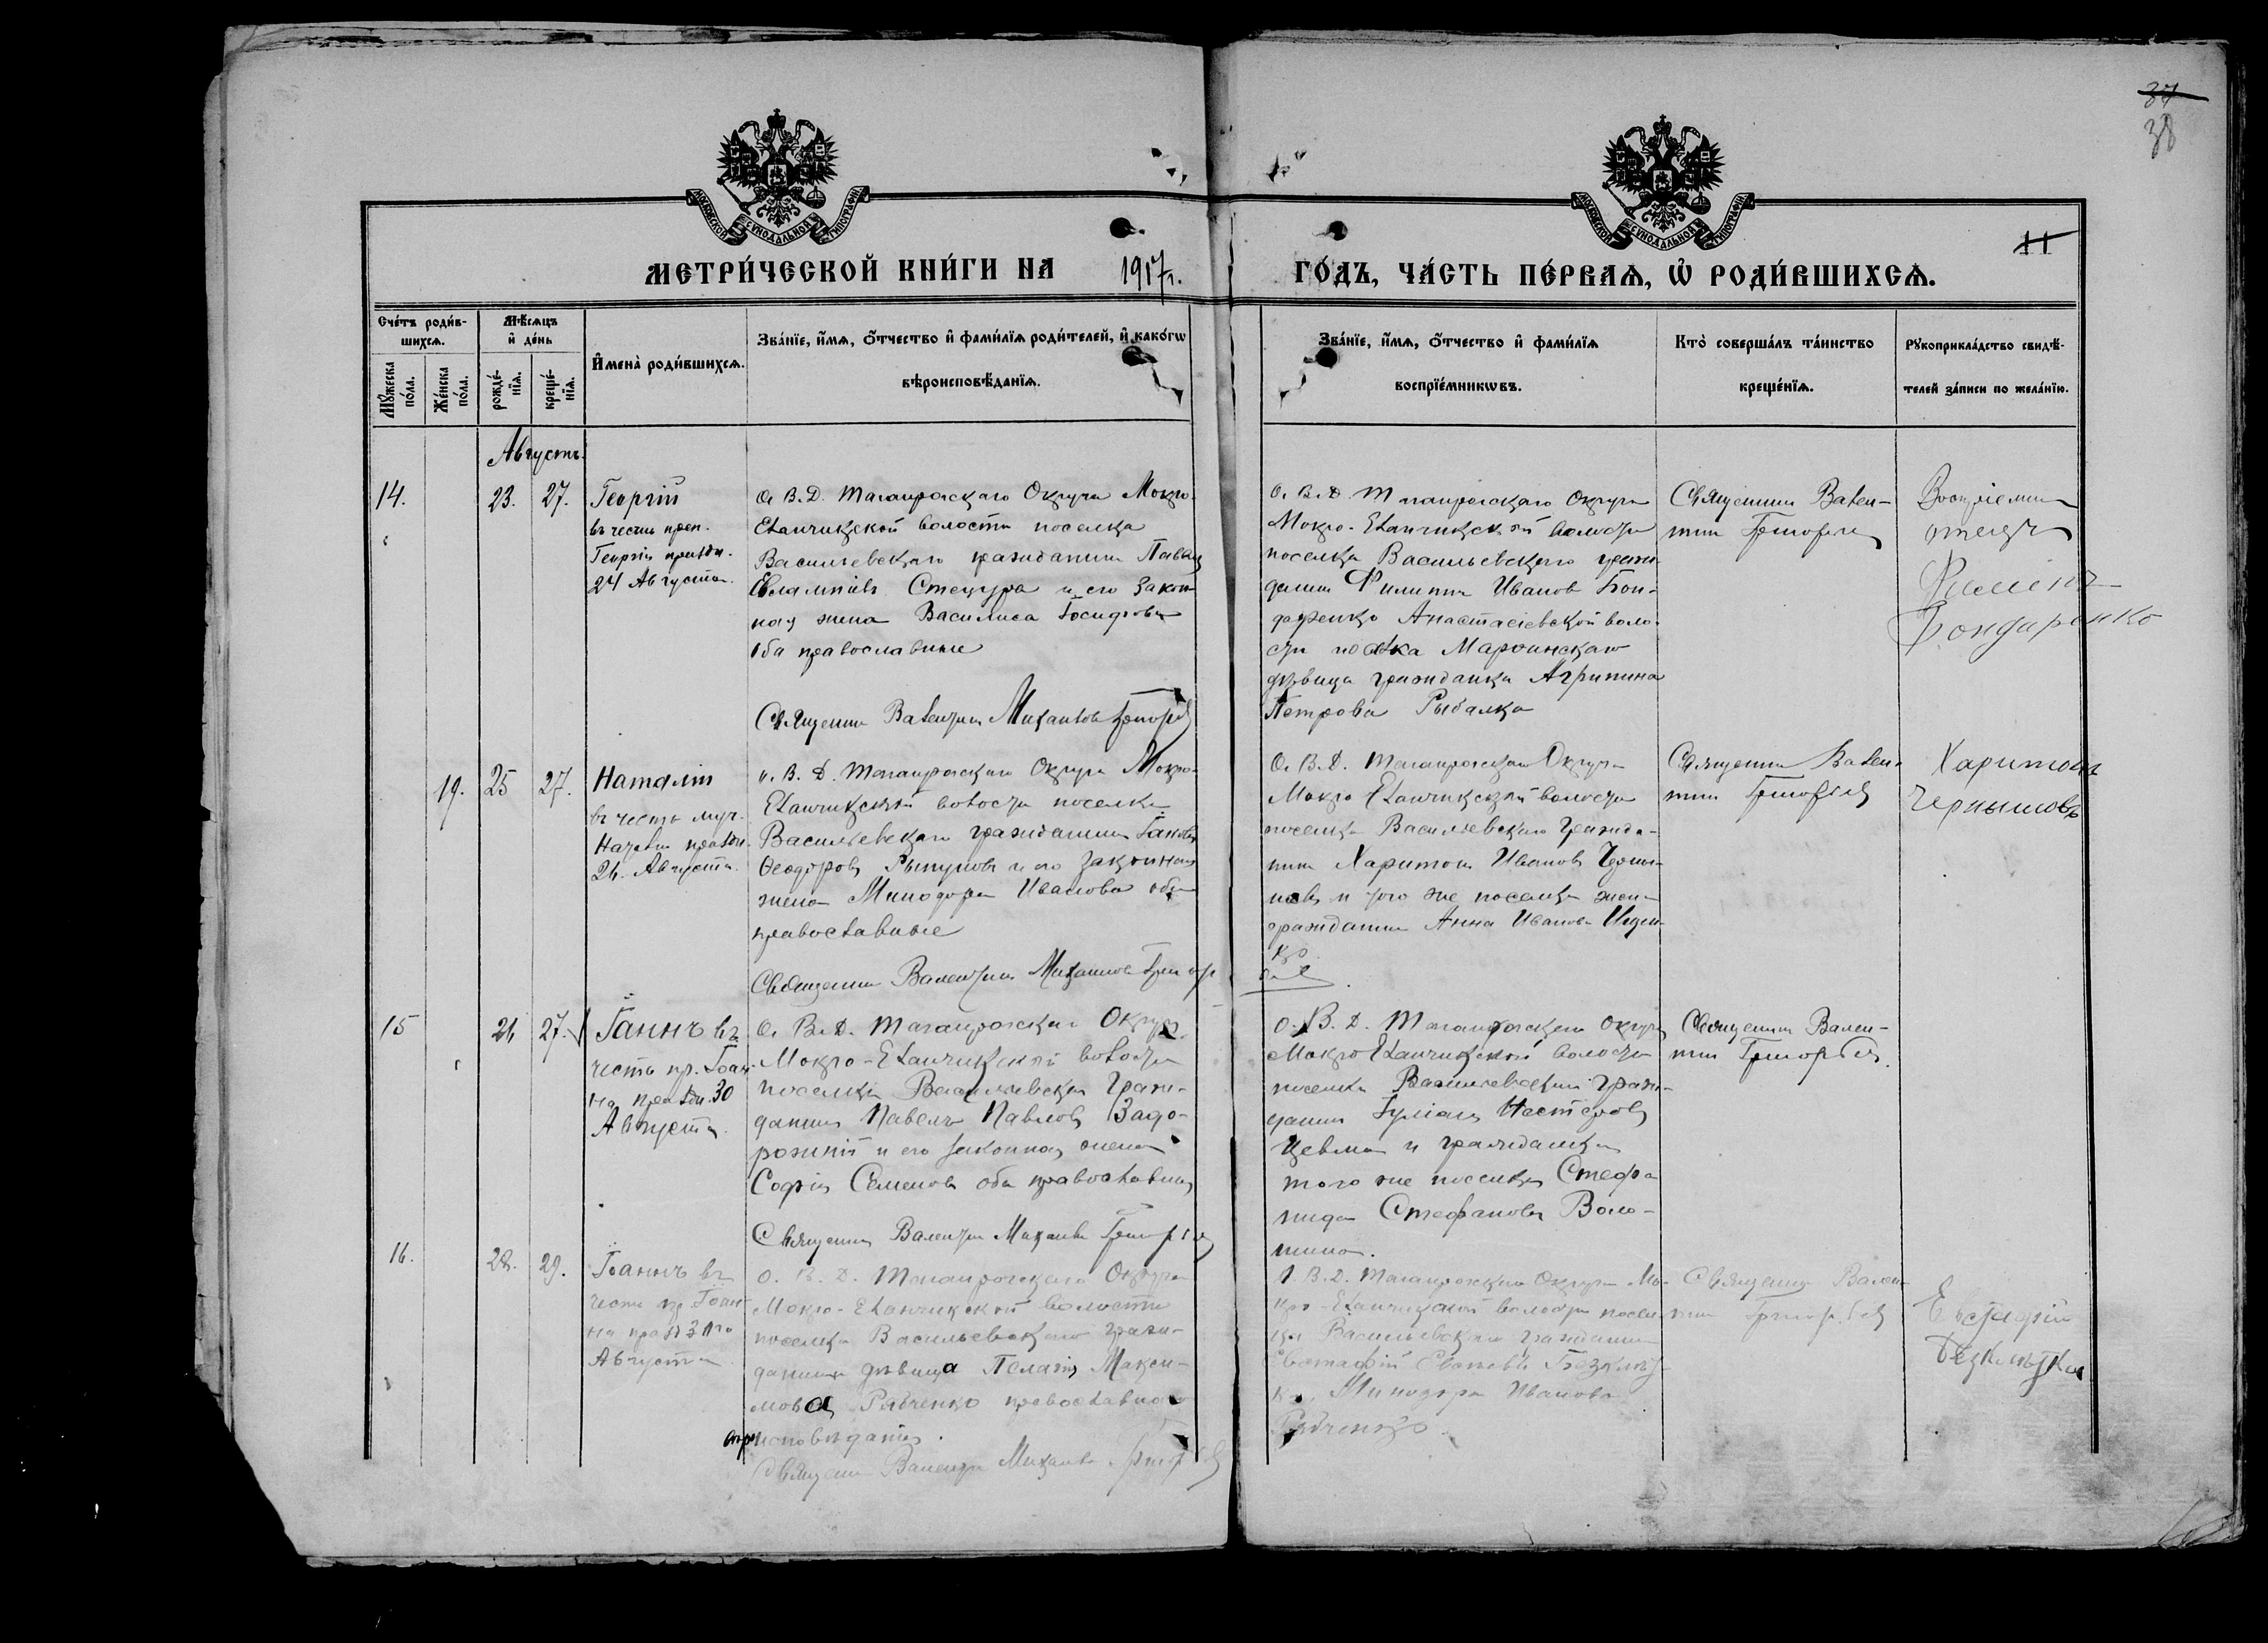 37
38
11
МОСКОВСКОЙ СѴНОДАЛЬНОЙ ТИПОГРАФІИ
МОСКОВСКОЙ СѴНОДАЛЬНОЙ ТИПОГРАФІИ
МЕТРИ́ЧЕСКОЙ КНИ́ГИ НА 1917 г. ГО́ДЪ, ЧА́СТЬ ПЕ́РВАѦ, Ѡ РОДИ́ВШИХСѦ.
Сче́тъ роди́в-
шихсѧ.
Мꙋ́жеска по́ла.
Же́нска по́ла.
Мѣ́сѧцъ
и҆ де́нь
рожде́-
нїѧ.
креще́-
нїѧ.
И҆мена̀ роди́вшихсѧ.
Зва́нїе, и҆́мѧ, ѻ҆́тчество и҆ фами́лїѧ роди́телей, и҆ како́гѡ
вѣроисповѣ́данїѧ.
Зва́нїе, и҆́мѧ, ѻ҆́тчество и҆ фами́лїѧ
воспрїе́мникѡвъ.
Кто̀ соверша́лъ та́инство
креще́нїѧ.
Рꙋкоприкла́дство свидѣ́-
телей за́писи по жела́нїю.
Августъ.
14.
23. 27.
Георгій
въ честь преп.
Георгія праздн.
24 Августа.
О. В. Д. Таганрогскаго Округа Мокро-
Еланчикской волости поселка
Васильевскаго гражданин Павелъ
Евлампіевъ Стецура и его закон-
ная жена Василиса Іосифова
оба православные
Священник Валентин Михаилов Григорьев
О. В. Д. Таганрогскаго Округа
Мокро-Еланчикской волости
поселка Васильевскаго граж-
данин Филиппъ Иванов Бон-
даренко Анастасіевской воло-
сти поселка Марфинскаго
дѣвица гражданка Агрипина
Петрова Рыбалка
Священник Вален-
тин Григорьев
Воспріемни
отецъ
Филиппъ
Бондаренко
19. 25 27.
Наталія
въ честь муч.
Наталіи праздн.
26. Августа.
О. В. Д. Таганрогскаго Округа Мокро-
Еланчикской волости поселка
Васильевскаго гражданин Іаковъ
Феодоровъ и его законная
жена Минодора Иванова оба
православные
Священник Валентин Михаилов Григорьев
О. В. Д. Таганрогскаго Округа
Мокро Еланчикской волости
поселка Васильевскаго гражда-
нин Харитон Иванов Черны-
шовъ и того же поселка жена
гражданина Анна Иванова
Священник Вален-
тин Григорьев
Харитонъ
Чернышовъ
15
26 27.
Іаннъ въ
честь пр. Іоан-
на праздн. 30
Августа.
О. В. Д. Таганрогскаго Округа
Мокро-Еланчикской волости
поселка Васильевскаго граж-
данин Павелъ Павловъ Задо-
рожній и его законная жена
Софія Семенова оба православные
Священник Валентин Михаилов Григорьев
О. В. Д. Таганрогскаго Округа
Мокро Еланчикской волости
поселка Васильевскаго граж-
данин Іуліанъ Нестеровъ
Цевма и гражданка
того же поселка Стефа
нида Стефанова Воло-
шина.
Священник Вален-
тин Григорьев.
16.
28. 29.
Іоаннъ въ
честь пр. Іоан-
на празд 30го
Августа
О. В. Д. Таганрогскаго Округа
Мокро-Еланчикской волости
поселка Васильевскаго граж-
данина дѣвица Пелагія Макси-
мова Рябченко православнаго
вѣроисповѣданія.
Священник Валентин Михаилов Григорьев
О. В. Д. Таганрогскаго Округа Мо-
кро-Еланчикской волости посел-
ка Васильевскаго гражданин
Евстафій Безклуб-
ка, Минодора Иванова
Рябченко.
Священник Вален-
тин Григорьев
Евстафій